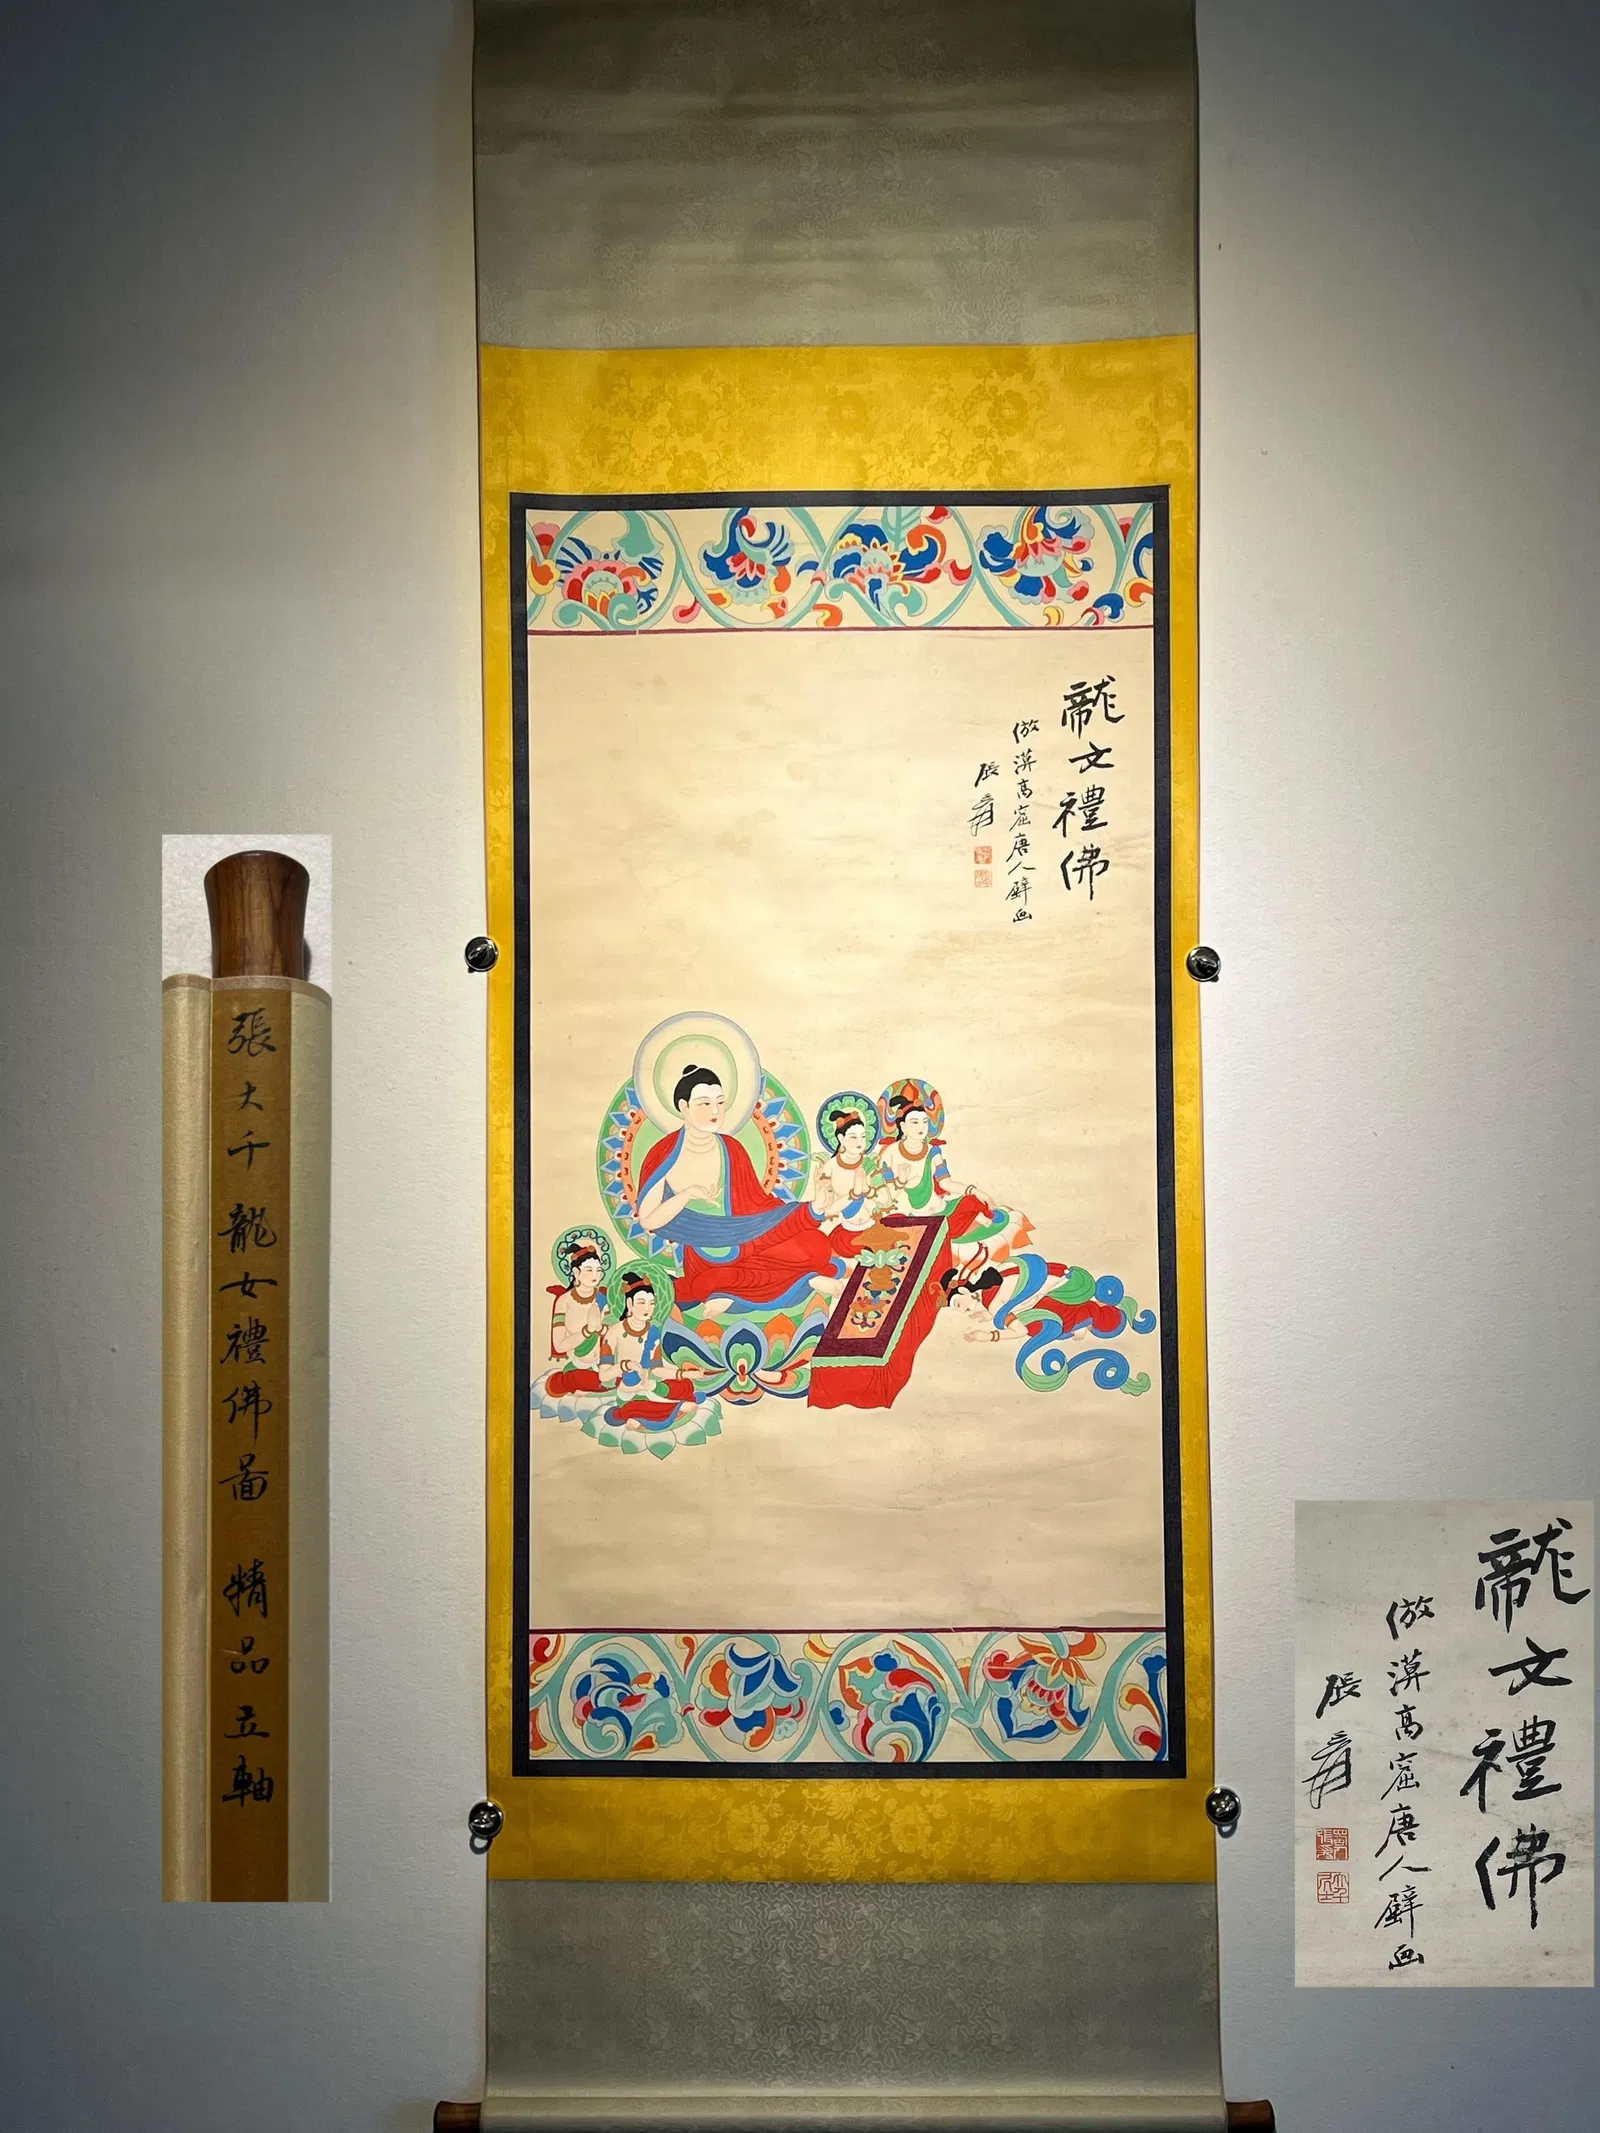 張大千龍女禮佛圖 精品立軸
龍文禮佛
倣漠高窟唐人壁画
張爰
龍文禮佛
倣漠高窟唐人壁画
張爰